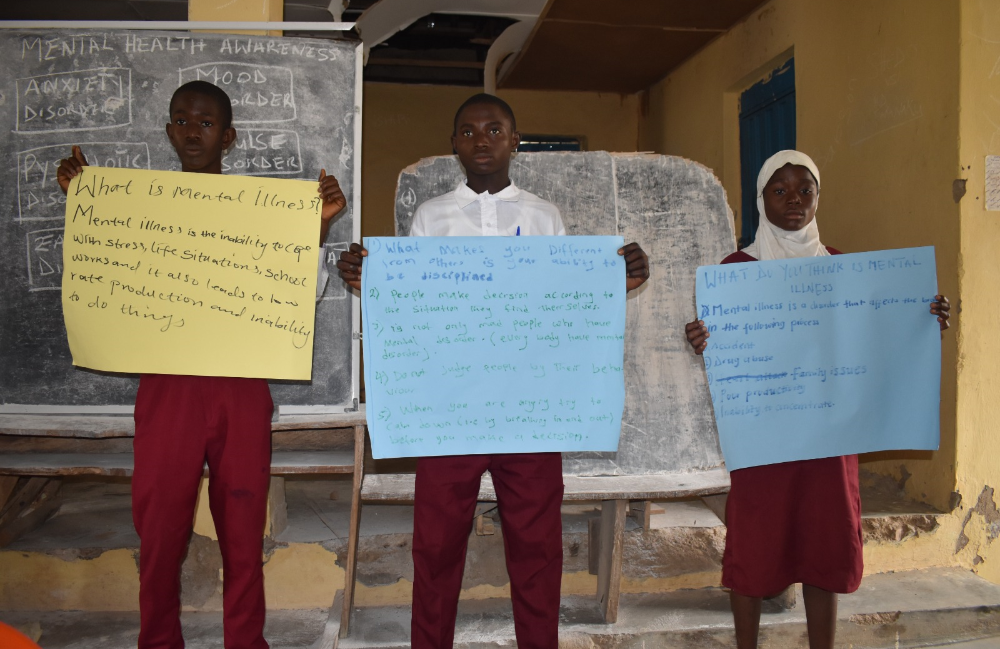 MENTAL HEALTH AWARENESS
ANXIETY
DISORDER
MOOD
ORDER
ULSE
DISORDER
What is mental illness?
Mental illness is the inability to cope
with stress, life situations, school
works and it also leads to low
rate production and inability
to do things
(d)
1) What makes you Different
from others is your ability to
be disciplined
2) People make decision according to
the situation they find themselves.
3) is not only mad people who have
mental disorder. (every body have mental
disorder).
4) Do not judge people by their beha
viour
5) When you are angry try to
calm down (i.e by breathing in and out)
before you make a decision.
WHAT DO YOU THINK IS MENTAL
ILLNESS
Mental illness is a disorder that affects the
in the following
Accident
Drug abuse
Family issues
Poor productivity